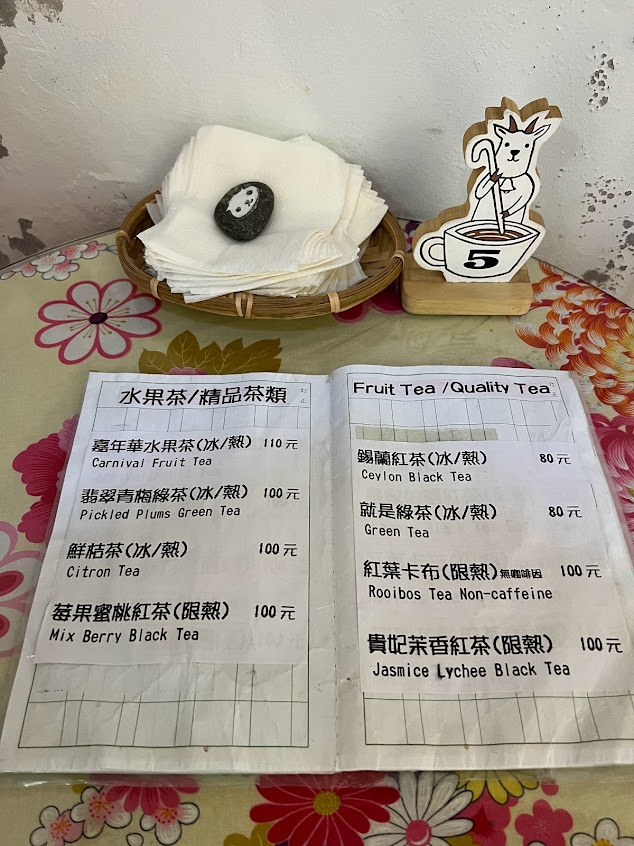 5
水果茶/精品茶類
訂正
嘉年華水果茶(冰/熱) 110元
Carnival Fruit Tea
翡翠青梅綠茶(冰/熱) 100元
Pickled Plums Green Tea
鮮桔茶(冰/熱) 100元
Citron Tea
莓果蜜桃紅茶(限熱) 100元
Mix Berry Black Tea
Fruit Tea /Quality Tea
訂正
錫蘭紅茶(冰/熱) 80元
Ceylon Black Tea
就是綠茶(冰/熱) 80元
Green Tea
紅葉卡布(限熱)無咖啡因 100元
Rooibos Tea Non-caffeine
貴妃茉香紅茶(限熱) 100元
Jasmice Lychee Black Tea